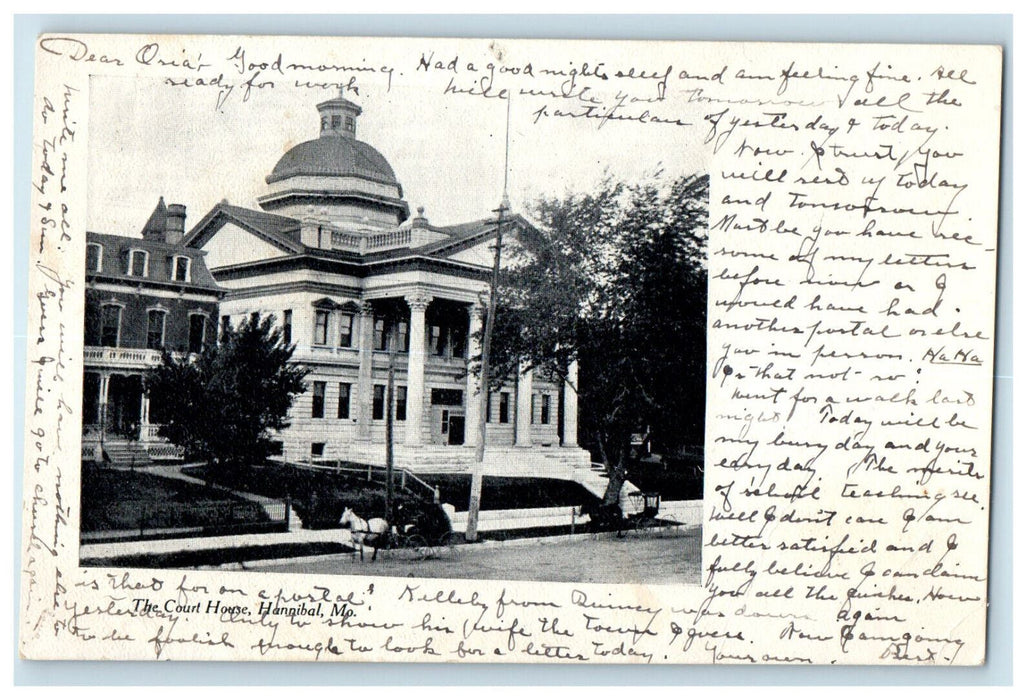 Dear Osia + Good morning. Had a good nights sleep and am feeling fine. All
ready for work Will write you tomorrow all the
particulars of yesterday & today.
Now I trust you
will rest up today
and tomorrow.
Must be you have rec-
some of my letters
before now or I
would have had
another postal or else
you in person. Ha Ha
Is that not so?
Went for a walk last
night. Today will be
my busy day and your
easy day. The merits
of school teaching see.
Well I don't care I am
better satisfied and I
fully believe I can claim
you all the quicker. How
is that for on a postal? Kelleby from Quincy was down again
The Court House, Hannibal, Mo.
yesterday. Only to show his wife the town I guess. Now I am going
to be foolish enough to look for a letter today. Your own Bert.
Write me all. You will have nothing else to
do today & Sun. I guess I will go to church again